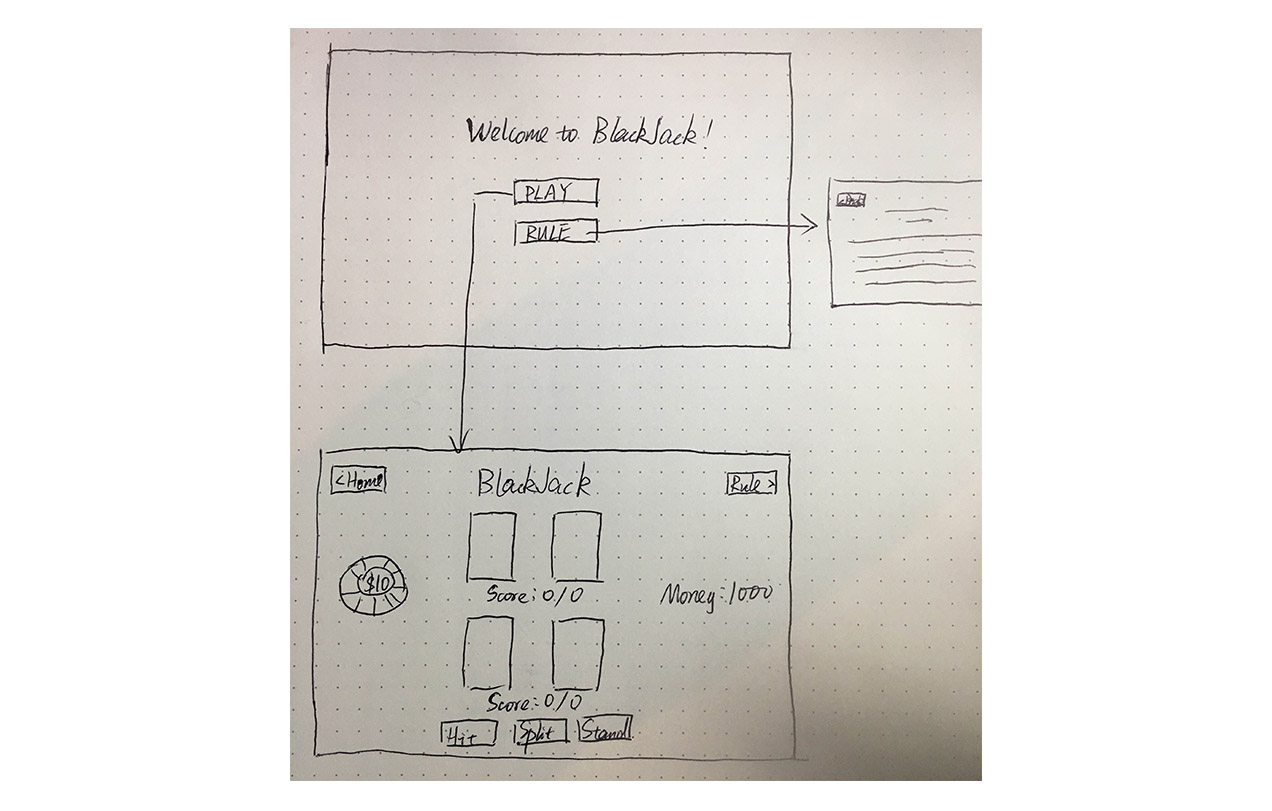 Welcome to BlackJack!
PLAY
RULE
<Home
BlackJack
Rule >
$10
Score: 0/0
Money: 1000
Score: 0/0
Hit
Split
Stand